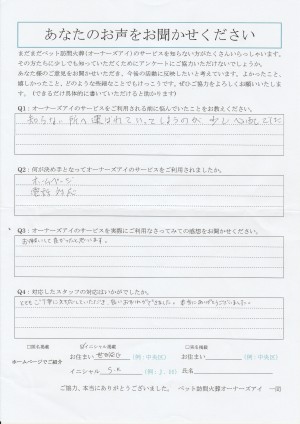 あなたのお声をお聞かせください
まだまだペット訪問火葬(オーナーズアイ)のサービスを知らない方がたくさんいらっしゃいます。
その方たちに少しでも知っていただくためにアンケートにご協力いただけないでしょうか。
あなた様のご意見をお聞かせいただき、今後の活動に反映したいと考えています。よかったこと、
嬉しかったこと、どのような些細なことでもけっこうです。ぜひご協力をよろしくお願いいたしま
す。(できるだけ具体的に書いていただけると助かります)
Q1:オーナーズアイのサービスをご利用される前に悩んでいたことをお教えください。
知らない所へ運ばれていってしまうのか少し心配でした
Q2:何が決めまとなってオーナーズアイのサービスをご利用されましたか。
ホームページ
電話対応
Q3:オーナーズアイのサービスを実際にご利用なさってみての感想をお聞かせください。
お願いして良かったと思います。
Q4:対応したスタッフの対応はいかがでしたか。
とてもご丁寧に対応していただき、
ありがとうございました。
□匿名掲載
イニシャル掲載
□実名掲載
ホームページでご紹介
お住まい 世田谷区 (例:中央区)
お住まい (例:中央区)
イニシャル S.K (例:J.H)
氏名
ご協力、本当にありがとうございました。 ペット訪問火葬オーナーズアイ 一同